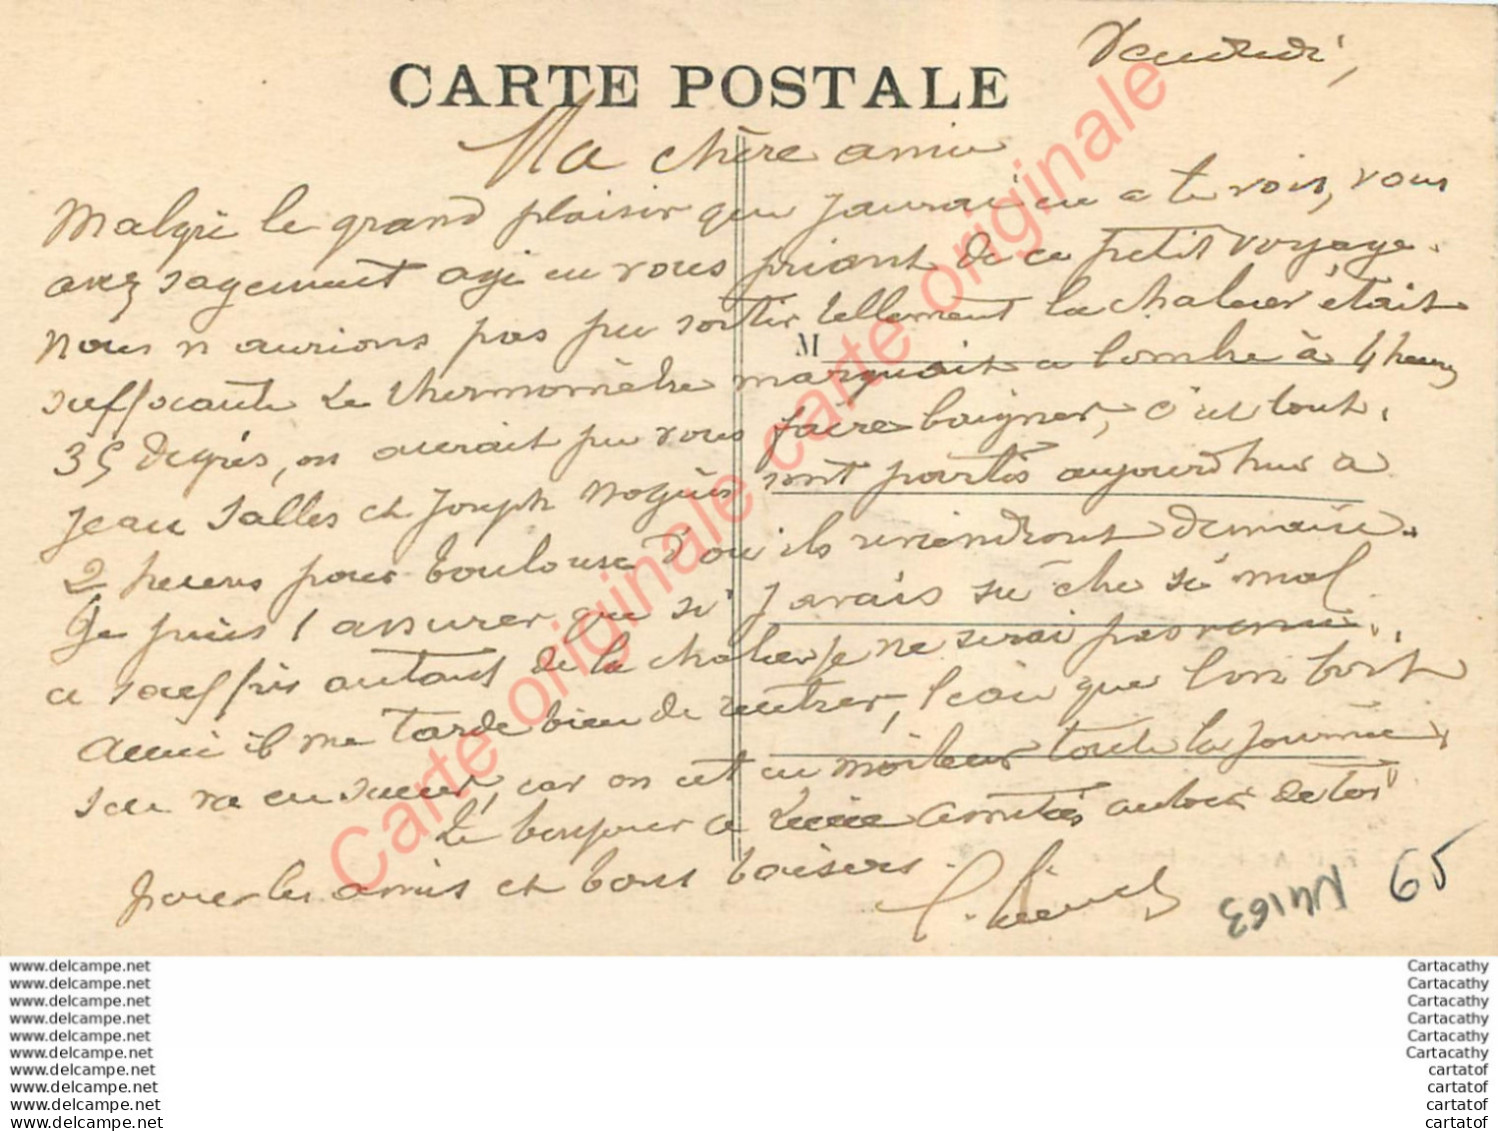 Vendredi,
CARTE POSTALE
Ma chère amie
Malgré le grand plaisir que jaurai eu a te voir, vous
avez sagement agi en vous priant de ce petit voyage.
Nous n aurions pas pu sortir tellement la chaleur était
suffocante Le thermomètre marquait a lombre à 4 heures
M
35 degrés, on aurait pu vous faire baigner, c'est tout.
Jean Salles et Joseph Noguès sont partis aujourdhui a
2 heures pour Toulouse d'ou ils reviendront demain.
Je puis t assurer que si j avais su être si mal
et souffrir autant de la chaleur je ne serai pas venue.
Aussi il me tarde bien de rentrer, l'eau que l'on boit
s'en va en sueur, car on est en moiteur toute la journée.
Le bonjour a amitiés autour de toi
pour les amis et bons baisers.
N4163 65
Carte originale carte originale
www.delcampe.net Cartacathy
www.delcampe.net Cartacathy
www.delcampe.net Cartacathy
www.delcampe.net Cartacathy
www.delcampe.net Cartacathy
www.delcampe.net Cartacathy
www.delcampe.net cartatof
www.delcampe.net cartatof
www.delcampe.net cartatof
www.delcampe.net cartatof